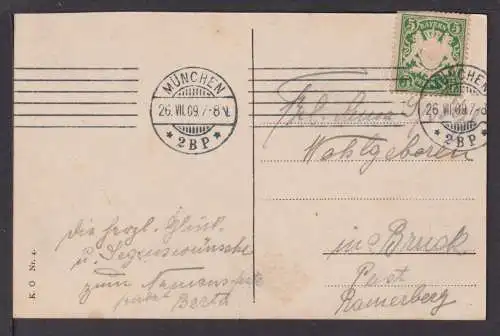 5 BAYERN 5
MÜNCHEN
26. VII. 09. 7-8 V.
* 2BP *
MÜNCHEN
26. VII. 09. 7-8
* 2BP *
Frl.
Wohlgeboren
in Bruck
Post
Ramerberg
Die herzl. Glück
u. Segenswünsche
zum Namensfeste
sendet
Berta
K O Nr. 4.